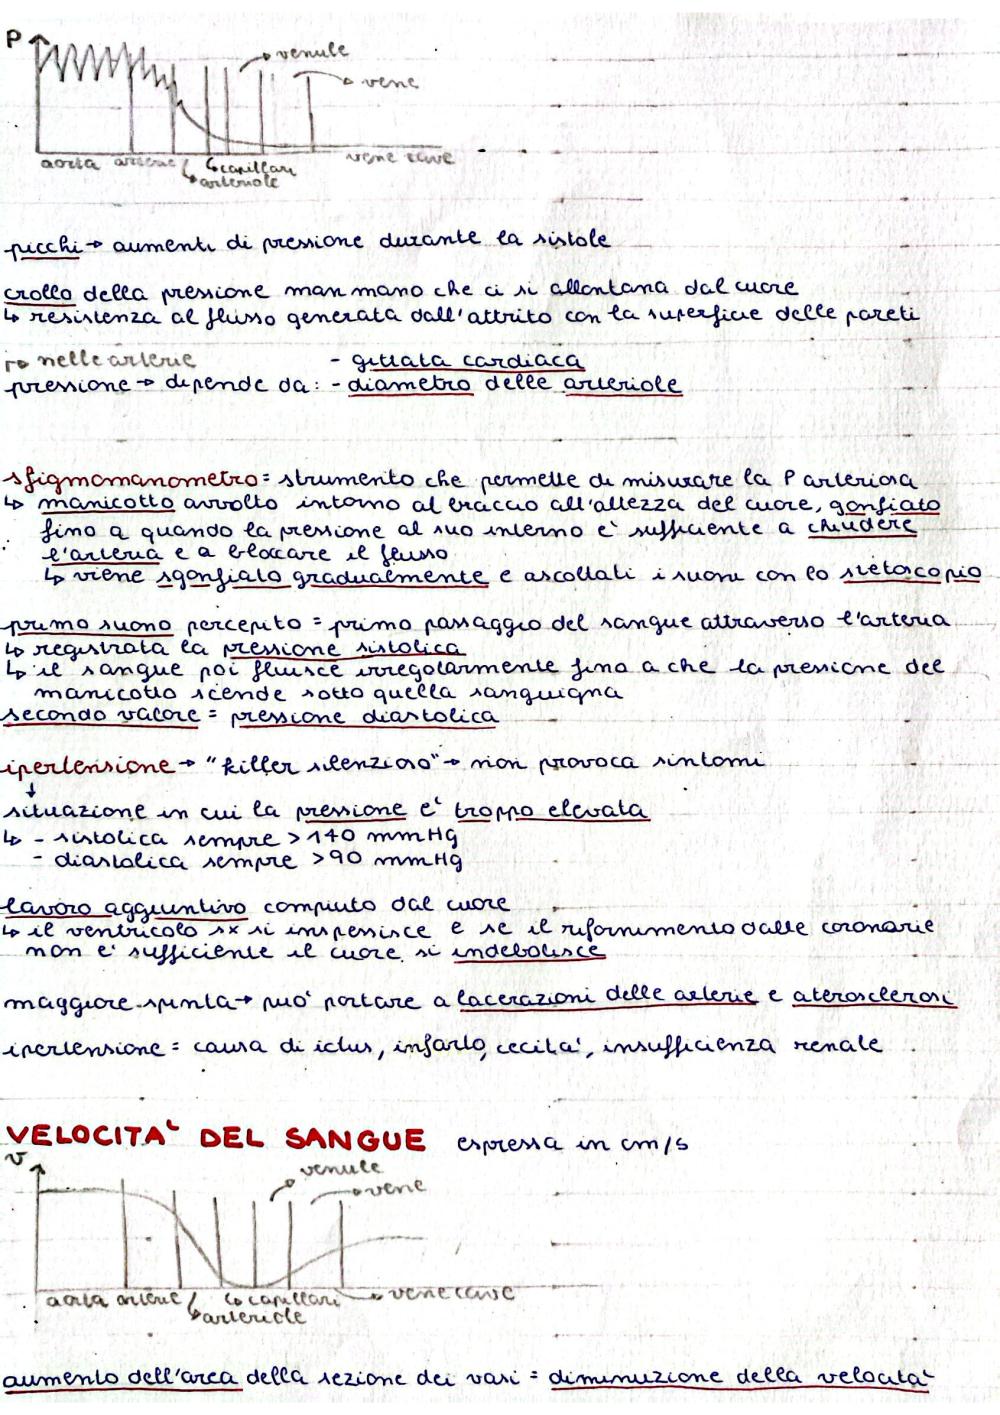 P
venule
vene
aorta arterie capillari vene cave
arteriole
picchi → aumenti di pressione durante la sistole
crollo della pressione man mano che ci si allontana dal cuore
↳ resistenza al flusso generata dall'attrito con la superficie delle pareti
nelle arterie - gittata cardiaca
pressione → dipende da: - diametro delle arteriole
sfigmomanometro = strumento che permette di misurare la P arteriosa
↳ manicotto avvolto intorno al braccio all'altezza del cuore, gonfiato
fino a quando la pressione al suo interno e' sufficiente a chiudere
l'arteria e a bloccare il flusso
↳ viene sgonfiato gradualmente e ascoltati i suoni con lo stetoscopio
primo suono percepito = primo passaggio del sangue attraverso l'arteria
↳ registrata la pressione sistolica
↳ il sangue poi fluisce irregolarmente fino a che la pressione del
manicotto scende sotto quella sanguigna
secondo valore = pressione diastolica
ipertensione → "killer silenzioso" → non provoca sintomi
↓
situazione in cui la pressione e' troppo elevata
↳ - sistolica sempre > 140 mmHg
- diastolica sempre > 90 mmHg
lavoro aggiuntivo compiuto dal cuore
↳ il ventricolo sx si inspessisce e se il rifornimento dalle coronarie
non e' sufficiente il cuore si indebolisce
maggiore spinta → puo' portare a lacerazioni delle arterie e aterosclerosi
ipertensione = causa di ictus, infarto, cecita', insufficienza renale
VELOCITA' DEL SANGUE espressa in cm/s
v
venule
vene
aorta arterie capillari vene cave
arteriole
aumento dell'area della sezione dei vasi = diminuzione della velocita'